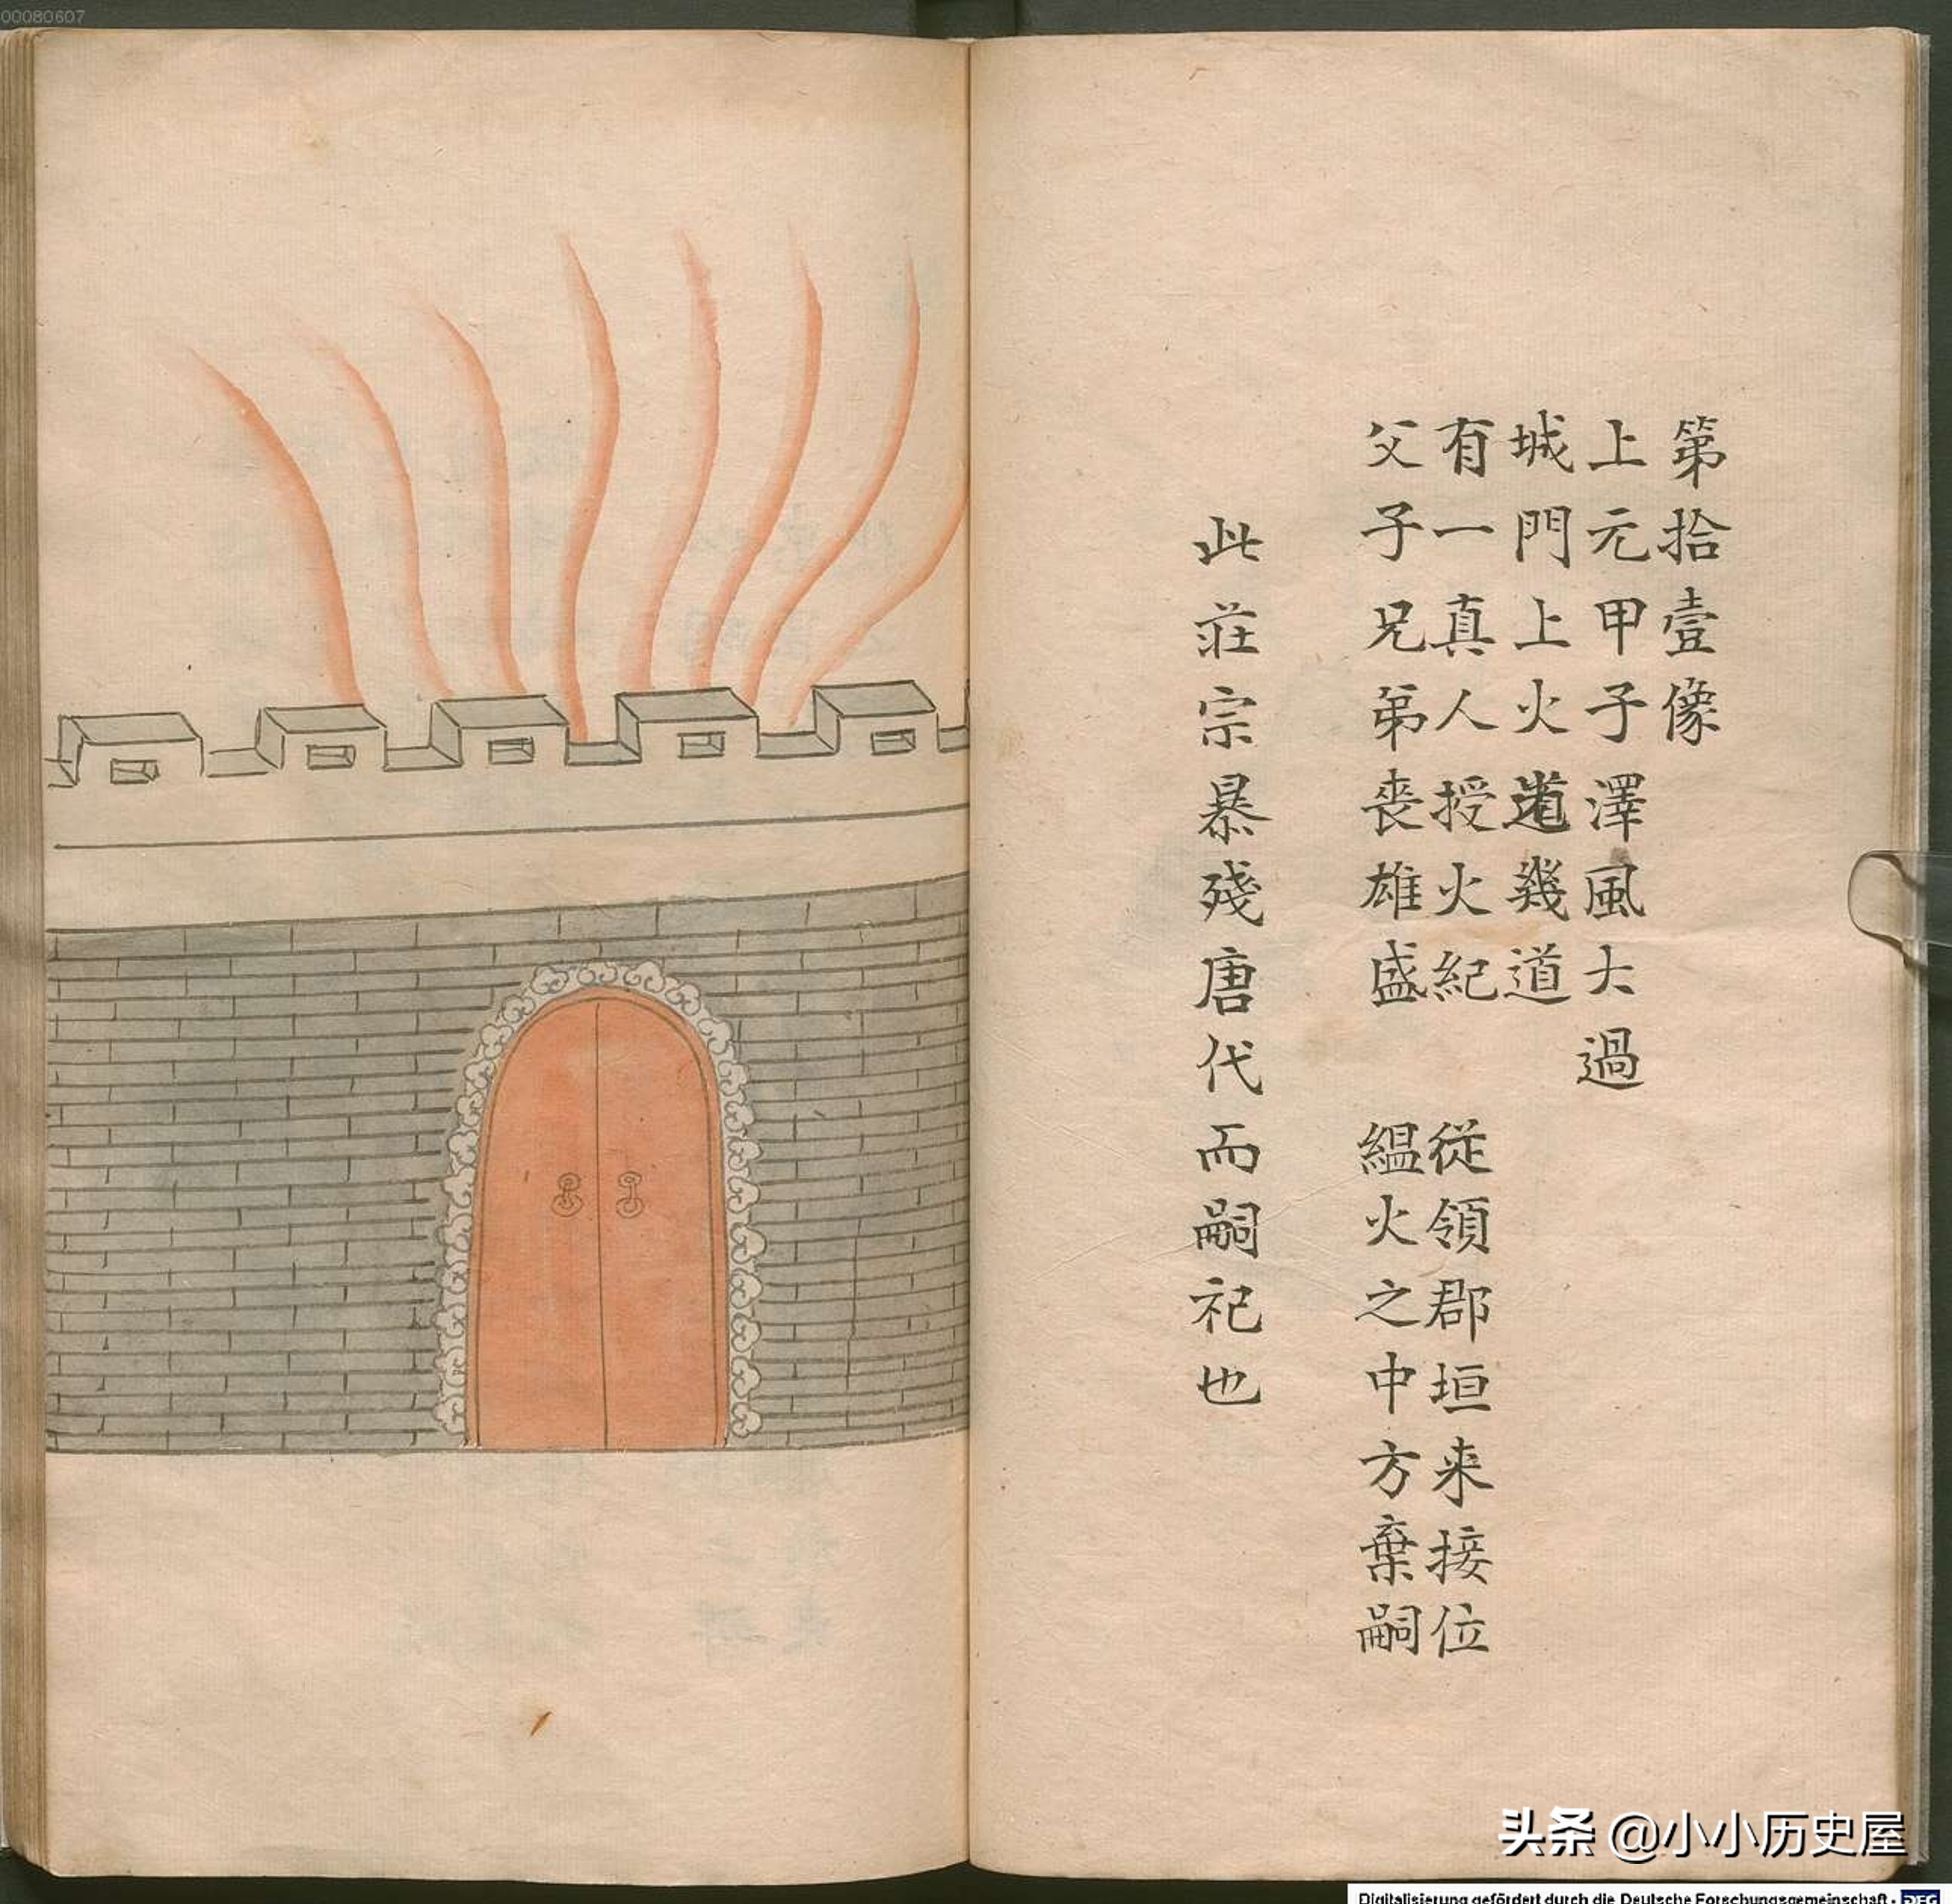 00080607
第拾壹像
上元甲子澤風大過
城門上火道幾道
有一真人授火紀 從領郡垣来接位
父子兄弟丧雄盛 緼火之中方棄嗣
此莊宗暴殘唐代而嗣祀也
头条 @小小历史屋
Digitalisierung gefördert durch die Deutsche Forschungsgemeinschaft - DFG